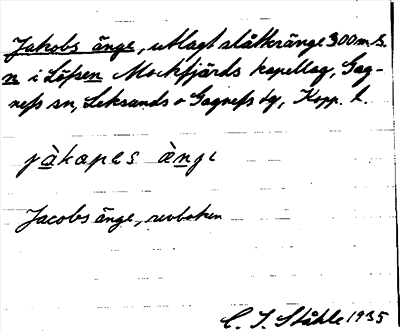 Jakobs änge, utlagt slåtteränge 300 m S.
n i Löfsen Mockfjärds kapellag, Gag-
nefs sn, Leksands o Gagnefs tg, Kopp. l.
jàkapes ànje
Jacobs änge, revboken
C. I. Ståhle 1935